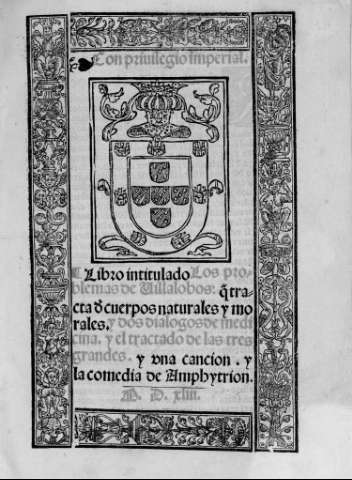 Con priuilegio imperial.
¶ Libro intitulado Los pro-
blemas de Uillalobos: q̃ tra-
cta ð cuerpos naturales y mo
rales. y dos dialogos de medi
cina. y el tractado de las tres
grandes. y vna cancion. y
la comedia de Amphytrion.
M. D. xliii.